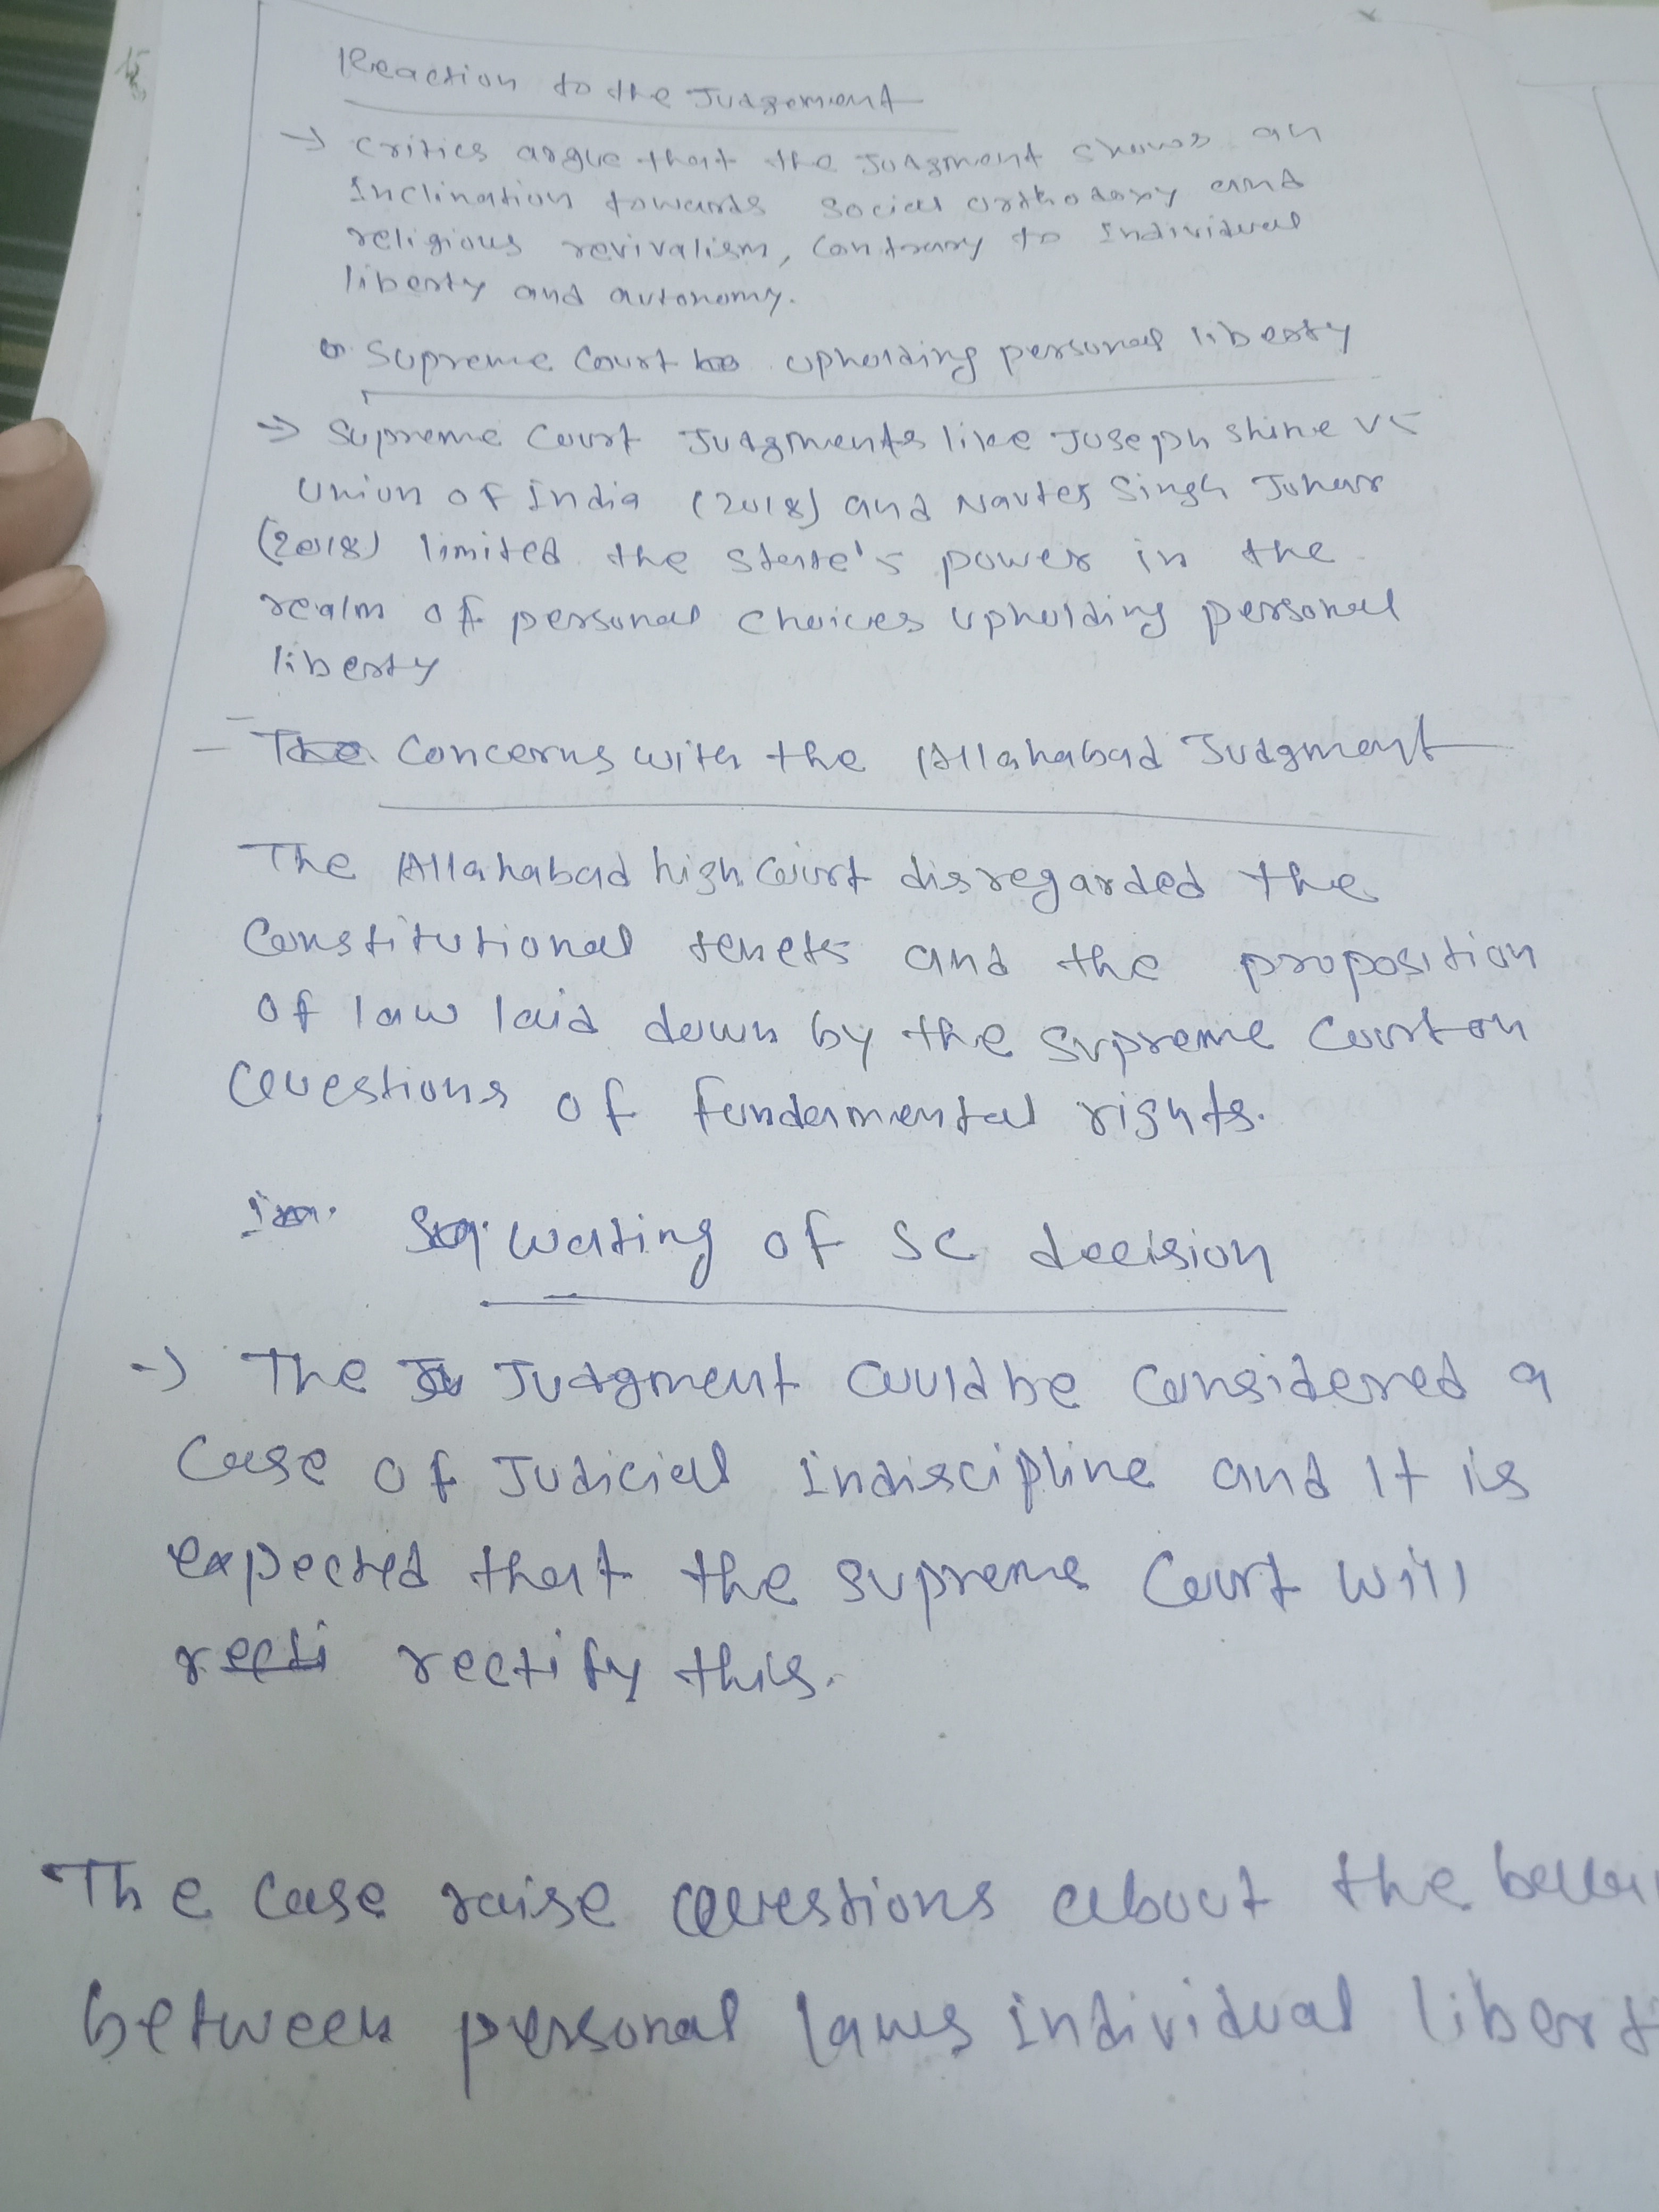 Reaction to the Judgement
→ Critics argue that the Judgment shows an
Inclination towards social orthodoxy and
religious revivalism, Contrary to Individual
liberty and autonomy.
Supreme Court upholding personal liberty
→ Supreme Court Judgments like Joseph Shine vs
Union of India (2018) and Navtej Singh Johar
(2018) limited the state's power in the
realm of personal choices upholding personal
liberty
- Concerns with the Allahabad Judgment
The Allahabad high Court disregarded the
Constitutional tenets and the proposition
of law laid down by the Supreme Court on
Questions of fundamental rights.
Waiting of SC decision
→ The Judgment Could be Considered a
Case of Judicial Indiscipline and It is
expected that the supreme Court will
recti rectify this.
The Case raise Questions about the
between personal laws individual libert